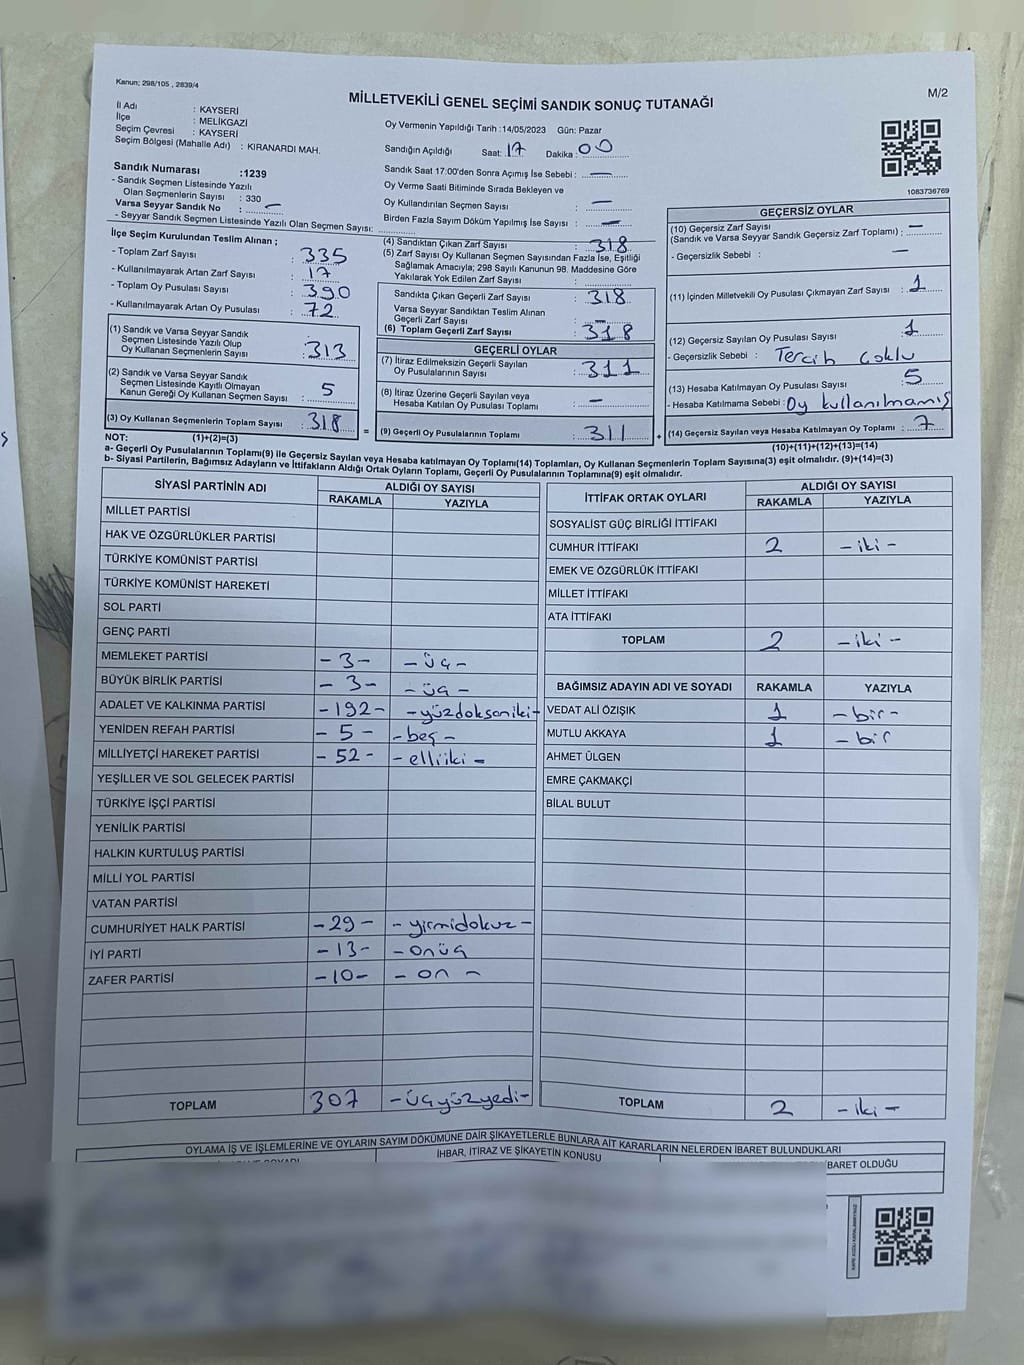 Kanun; 298/105 , 2839/4
M/2
MİLLETVEKİLİ GENEL SEÇİMİ SANDIK SONUÇ TUTANAĞI
İl Adı : KAYSERİ
İlçe : MELİKGAZİ
Seçim Çevresi : KAYSERİ
Seçim Bölgesi (Mahalle Adı) : KIRANARDI MAH.
Sandık Numarası :1239
- Sandık Seçmen Listesinde Yazılı
Olan Seçmenlerin Sayısı : 330
Varsa Seyyar Sandık No : —
- Seyyar Sandık Seçmen Listesinde Yazılı Olan Seçmen Sayısı:
Oy Vermenin Yapıldığı Tarih :14/05/2023 Gün: Pazar
Sandığın Açıldığı Saat: 17 Dakika : 00
Sandık Saat 17:00'den Sonra Açımış İse Sebebi : —
Oy Verme Saati Bitiminde Sırada Bekleyen ve
Oy Kullandırılan Seçmen Sayısı : —
Birden Fazla Sayım Döküm Yapılmış İse Sayısı : —
1083736769
İlçe Seçim Kurulundan Teslim Alınan ;
- Toplam Zarf Sayısı : 335
- Kullanılmayarak Artan Zarf Sayısı : 17
- Toplam Oy Pusulası Sayısı : 390
- Kullanılmayarak Artan Oy Pusulası : 72
(1) Sandık ve Varsa Seyyar Sandık
Seçmen Listesinde Yazılı Olup
Oy Kullanan Seçmenlerin Sayısı : 313
(2) Sandık ve Varsa Seyyar Sandık
Seçmen Listesinde Kayıtlı Olmayan
Kanun Gereği Oy Kullanan Seçmen Sayısı : 5
(3) Oy Kullanan Seçmenlerin Toplam Sayısı : 318
(4) Sandıktan Çıkan Zarf Sayısı : 318
(5) Zarf Sayısı Oy Kullanan Seçmen Sayısından Fazla İse, Eşitliği
Sağlamak Amacıyla; 298 Sayılı Kanunun 98. Maddesine Göre
Yakılarak Yok Edilen Zarf Sayısı :
Sandıkta Çıkan Geçerli Zarf Sayısı : 318
Varsa Seyyar Sandıktan Teslim Alınan
Geçerli Zarf Sayısı : —
(6) Toplam Geçerli Zarf Sayısı : 318
GEÇERLİ OYLAR
(7) İtiraz Edilmeksizin Geçerli Sayılan
Oy Pusulalarının Sayısı : 311
(8) İtiraz Üzerine Geçerli Sayılan veya
Hesaba Katılan Oy Pusulaları Toplamı : —
= (9) Geçerli Oy Pusulalarının Toplamı : 311 +
GEÇERSİZ OYLAR
(10) Geçersiz Zarf Sayısı
(Sandık ve Varsa Seyyar Sandık Geçersiz Zarf Toplamı) : —
- Geçersizlik Sebebi : —
(11) İçinden Milletvekili Oy Pusulası Çıkmayan Zarf Sayısı : 1
(12) Geçersiz Sayılan Oy Pusulası Sayısı : 1
- Geçersizlik Sebebi : Tercih çoklu
(13) Hesaba Katılmayan Oy Pusulası Sayısı : 5
- Hesaba Katılmama Sebebi : Oy kullanılmamış
(14) Geçersiz Sayılan veya Hesaba Katılmayan Oy Toplamı : 7
NOT: (1)+(2)=(3)
(10)+(11)+(12)+(13)=(14)
a- Geçerli Oy Pusulalarının Toplamı(9) ile Geçersiz Sayılan veya Hesaba katılmayan Oy Toplamı(14) Toplamları, Oy Kullanan Seçmenlerin Toplam Sayısına(3) eşit olmalıdır. (9)+(14)=(3)
b- Siyasi Partilerin, Bağımsız Adayların ve İttifakların Aldığı Ortak Oyların Toplamı, Geçerli Oy Pusulalarının Toplamına(9) eşit olmalıdır.
SİYASİ PARTİNİN ADI ALDIĞI OY SAYISI
RAKAMLA YAZIYLA
MİLLET PARTİSİ
HAK VE ÖZGÜRLÜKLER PARTİSİ
TÜRKİYE KOMÜNİST PARTİSİ
TÜRKİYE KOMÜNİST HAREKETİ
SOL PARTİ
GENÇ PARTİ
MEMLEKET PARTİSİ -3- -üç-
BÜYÜK BİRLİK PARTİSİ -3- -üç-
ADALET VE KALKINMA PARTİSİ -192- -yüzdoksaniki-
YENİDEN REFAH PARTİSİ -5- -beş-
MİLLİYETÇİ HAREKET PARTİSİ -52- -elliiki-
YEŞİLLER VE SOL GELECEK PARTİSİ
TÜRKİYE İŞÇİ PARTİSİ
YENİLİK PARTİSİ
HALKIN KURTULUŞ PARTİSİ
MİLLİ YOL PARTİSİ
VATAN PARTİSİ
CUMHURİYET HALK PARTİSİ -29- -yirmidokuz-
İYİ PARTİ -13- -onüç
ZAFER PARTİSİ -10- -on-
TOPLAM 307 -üçyüzyedi-
İTTİFAK ORTAK OYLARI ALDIĞI OY SAYISI
RAKAMLA YAZIYLA
SOSYALİST GÜÇ BİRLİĞİ İTTİFAKI
CUMHUR İTTİFAKI 2 -iki-
EMEK VE ÖZGÜRLÜK İTTİFAKI
MİLLET İTTİFAKI
ATA İTTİFAKI
TOPLAM 2 -iki-
BAĞIMSIZ ADAYIN ADI VE SOYADI RAKAMLA YAZIYLA
VEDAT ALİ ÖZIŞIK 1 -bir-
MUTLU AKKAYA 1 -bir
AHMET ÜLGEN
EMRE ÇAKMAKÇİ
BİLAL BULUT
TOPLAM 2 -iki-
OYLAMA İŞ VE İŞLEMLERİNE VE OYLARIN SAYIM DÖKÜMÜNE DAİR ŞİKAYETLERLE BUNLARA AİT KARARLARIN NELERDEN İBARET BULUNDUKLARI
İHBAR, İTİRAZ VE ŞİKAYETİN KONUSU
BARET OLDUĞU